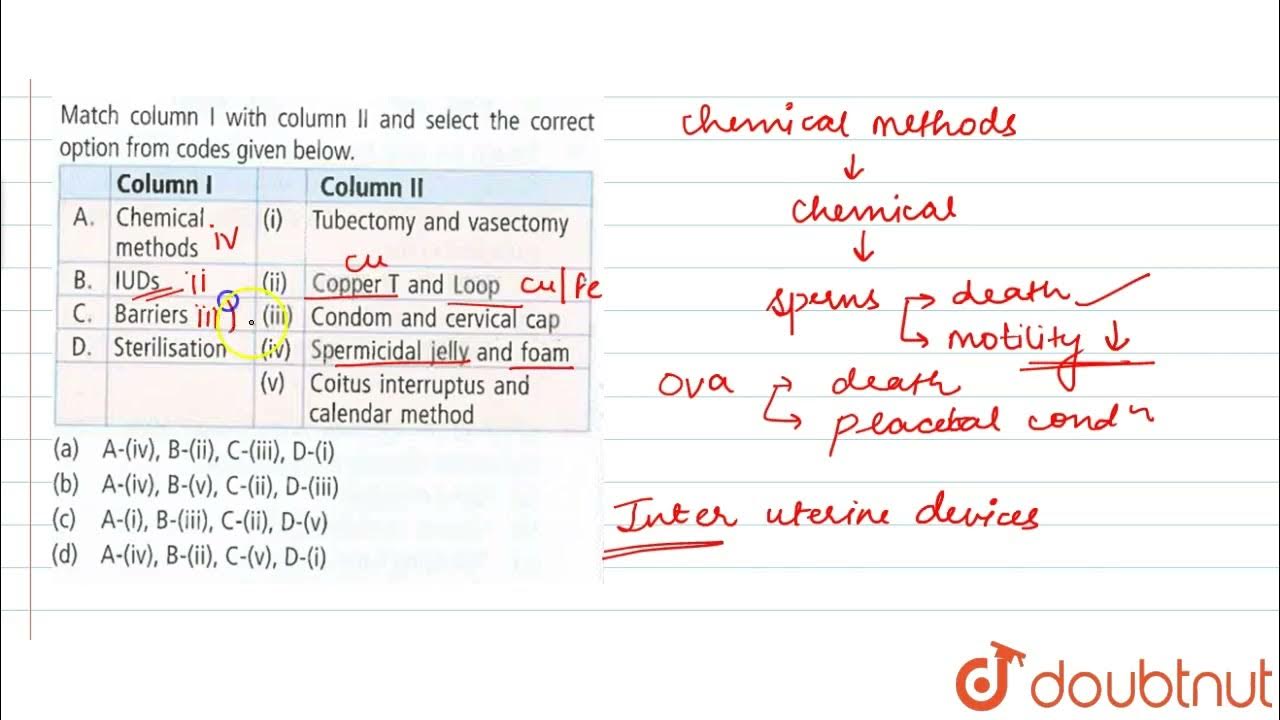 Match column I with column II and select the correct
option from codes given below.
Column I Column II
A. Chemical methods iv (i) Tubectomy and vasectomy
cu
B. IUDs ii (ii) Copper T and Loop cu/Fe
C. Barriers iii) (iii) Condom and cervical cap
D. Sterilisation (iv) Spermicidal jelly and foam
(v) Coitus interruptus and
calendar method
(a) A-(iv), B-(ii), C-(iii), D-(i)
(b) A-(iv), B-(v), C-(ii), D-(iii)
(c) A-(i), B-(iii), C-(ii), D-(v)
(d) A-(iv), B-(ii), C-(v), D-(i)
chemical methods
chemical
sperms death
motility
ova death
placetal condn
Inter uterine devices
doubtnut